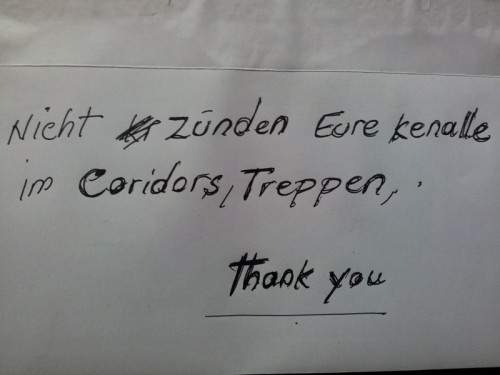 Nicht zünden Eure Kenalle
im Coridors, Treppen,.
Thank you